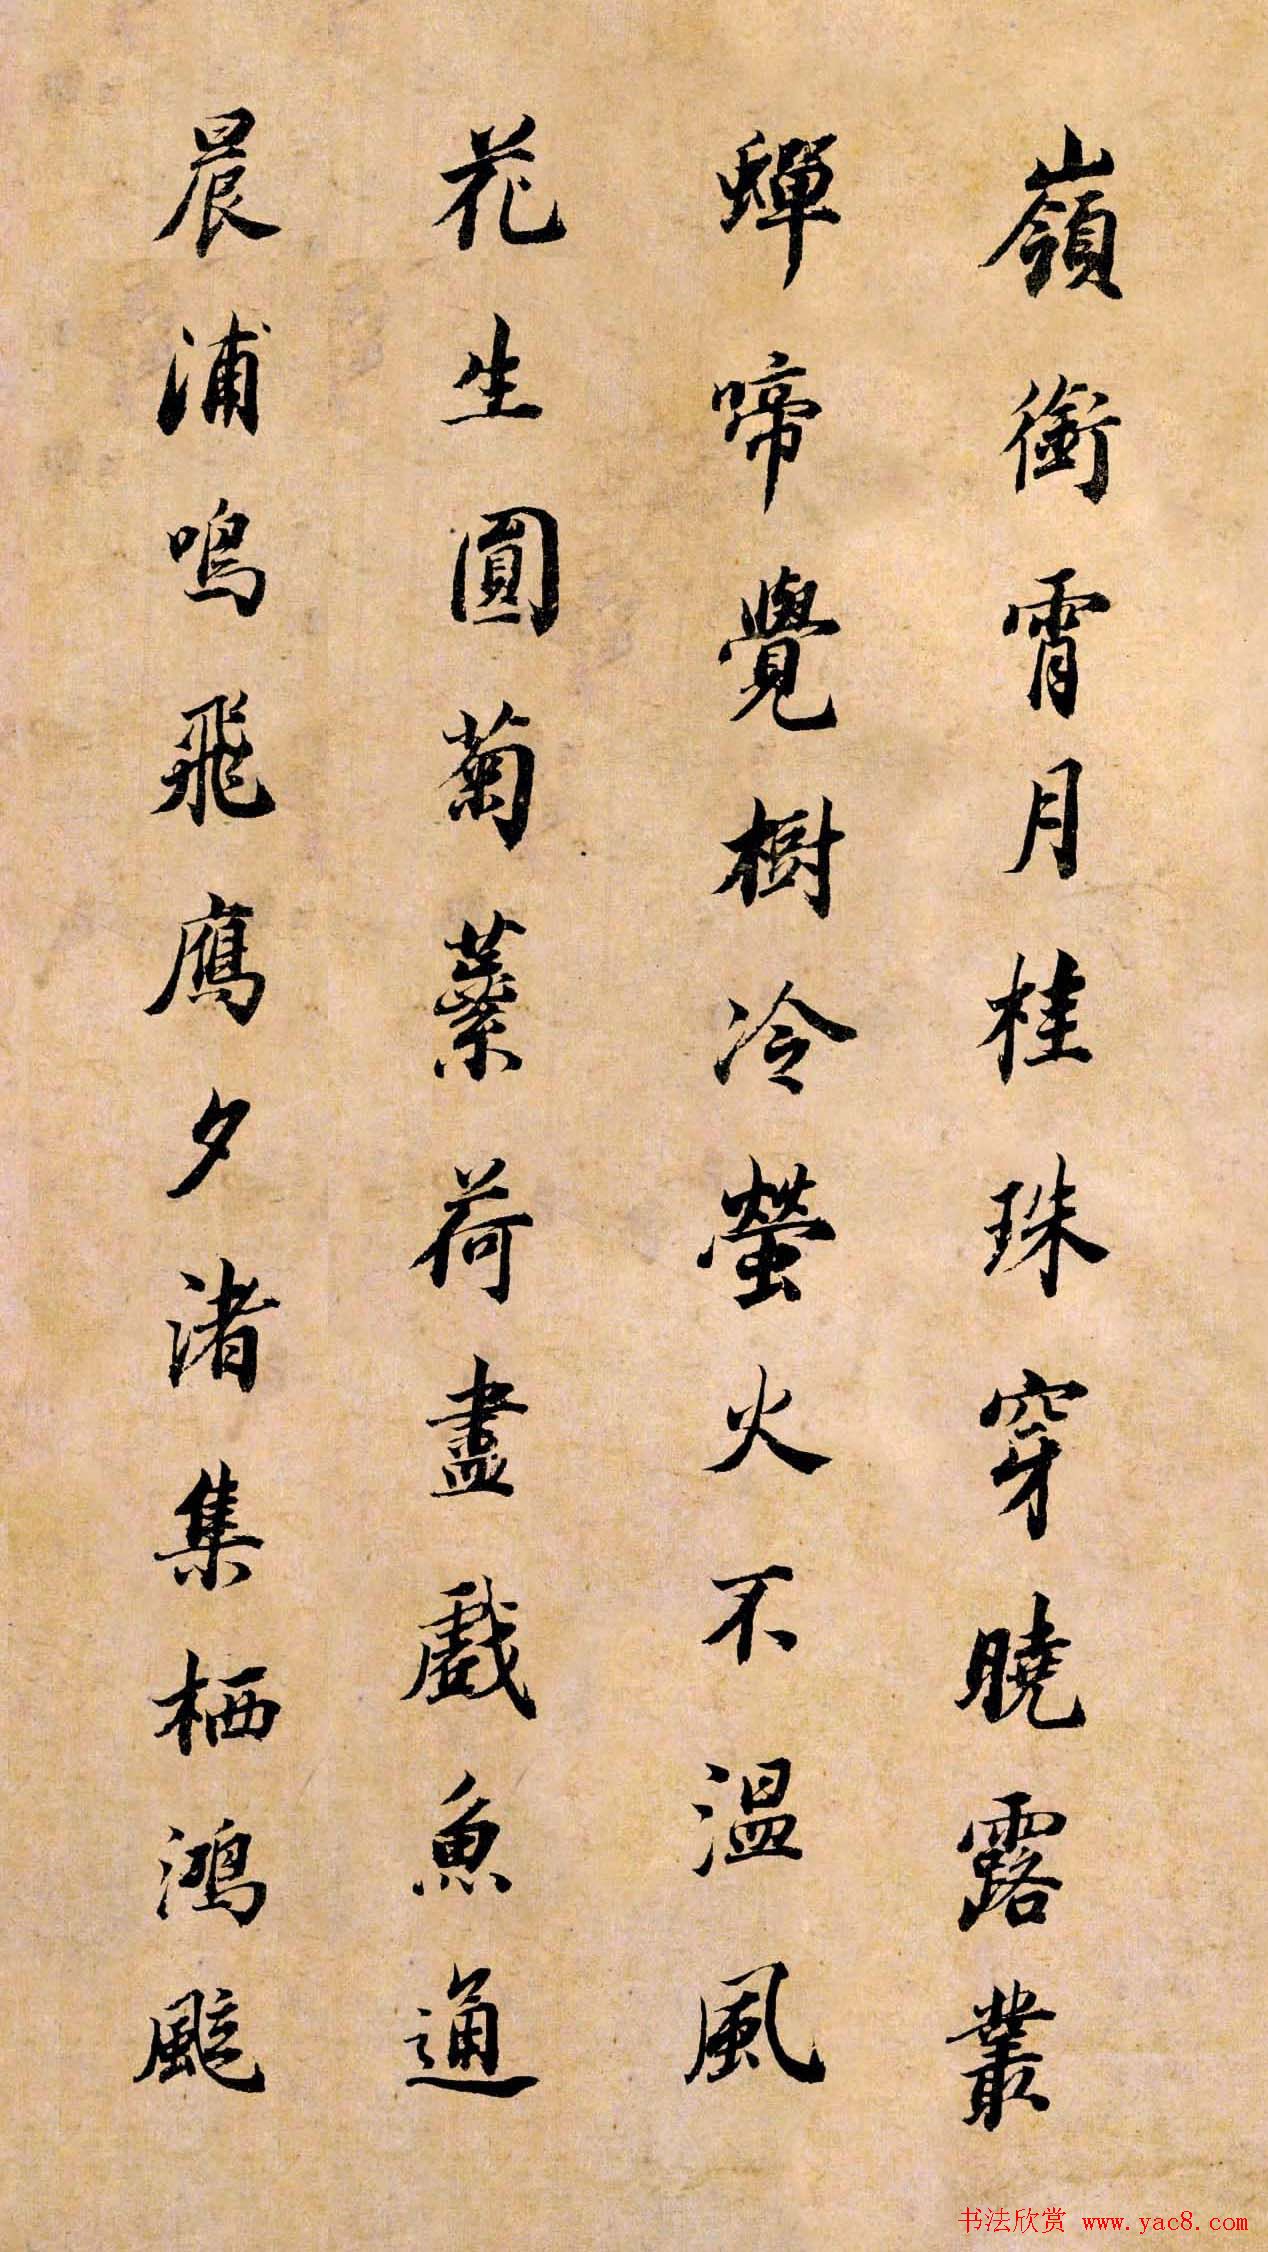 嶺銜霄月桂珠穿曉露叢
蟬啼覺樹冷螢火不溫風
花生圓菊蕊荷盡戲魚通
晨浦鳴飛鴈夕渚集栖鴻
颻
书法欣赏 www.yac8.com